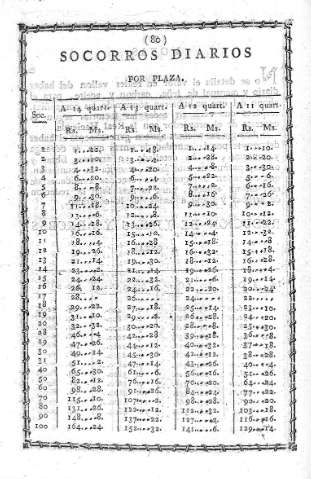 (80)
SOCORROS DIARIOS
POR PLAZA.
A 14 quart. A 13 quart. A 12 quart. A 11 quart.
Soc. Rs. Ms. Rs. Ms. Rs. Ms. Rs. Ms.
1 1...18. 1...14. 1...10.
2 3...10. 3...2. 2...28. 2...20.
3 4...32. 4...20. 4...8. 3...30.
4 6...20. 6...4. 5...22. 5...6.
5 8...8. 7...22. 7...2. 6...16.
6 9...30. 9...6. 8...16. 7...26.
7 11...18. 10...24. 9...30. 9...2.
8 13...6. 12...8. 11...10. 10...12.
9 14...28. 13...26. 12...24. 11...22.
10 16...16. 15...10. 14...4. 12...32.
11 18...4. 16...28 15...18. 14...8
12 19...26. 18...12. 16...32. 15...18.
13 21...14. 19...30. 18...12. 16...28.
14 23...2. 21...14. 19...26. 18...4.
15 24...24. 22...32. 21...6. 19...14.
16 26. 12. 24...16. 22...20. 20...24.
17 28.... 26.... 24.... 22....
18 29...22. 27...18. 25...14. 23...10.
19 31...10. 29...2. 26...28. 24...20.
20 32...32. 30...20. 28...8. 25...30.
28 46...4. 42...28. 39...18. 36...8.
29 47...26. 44...12. 40...32. 37...18.
30 49...14. 45...30. 42...12. 38...28.
31 51...2. 47...14. 43...26. 40...4.
40 65...30. 61...6. 56...16. 51...26.
50 82...12. 76...16. 70...20. 64...24.
60 98...28. 91...26. 84...24. 77...22.
70 115...10. 107...2. 98...28. 90...20.
80 131...26. 122...12. 112...32. 103...18.
90 148...8. 137...22. 127...2. 116...16.
100 164...24. 152...32. 141...6. 129...14.